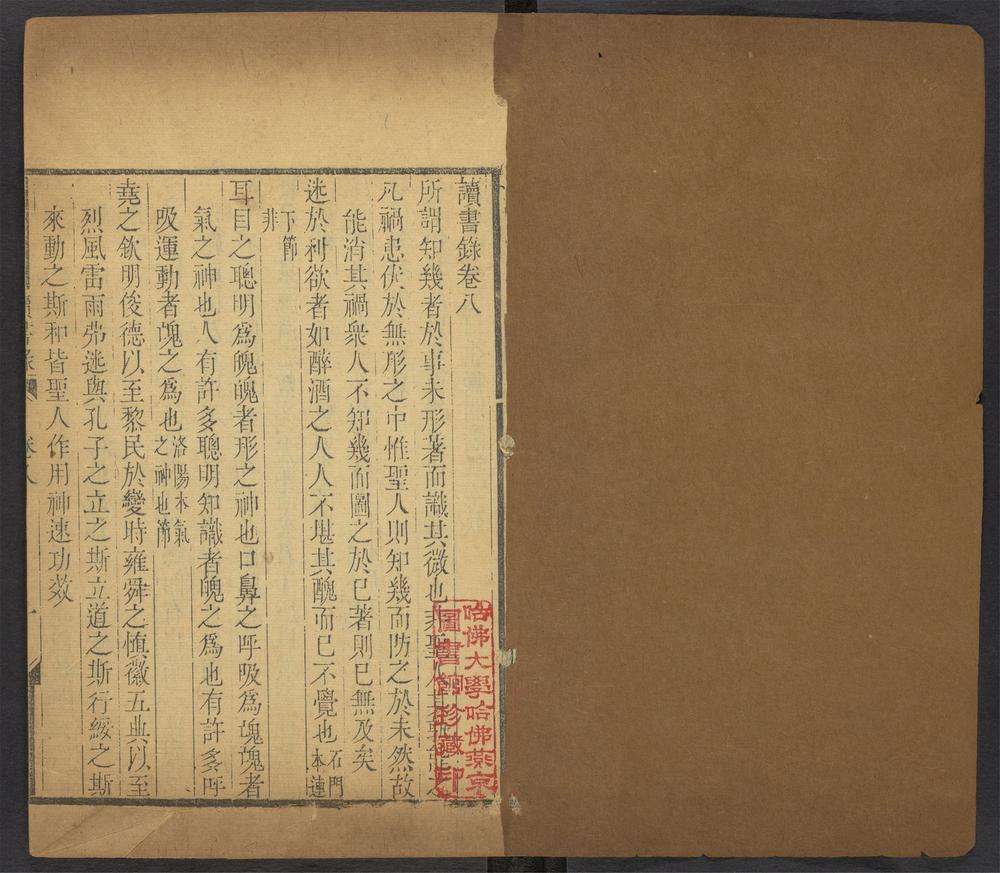 讀書錄卷八
所謂知幾者於事未形著而識其微也非聖人其孰能之
凡禍患伏於無形之中惟聖人則知幾而防之於未然故
能消其禍衆人不知幾而圖之於已著則已無及矣
迷於利欲者如醉酒之人人不堪其醜而已不覺也石門本連
下節非
耳目之聰明爲魄魄者形之神也口鼻之呼吸爲魂魂者
氣之神也人有許多聰明知識者魄之爲也有許多呼
吸運動者魂之爲也洛陽本氣之神也節
堯之欽明俊德以至黎民於變時雍舜之愼徽五典以至
烈風雷雨弗迷與孔子之立之斯立道之斯行綏之斯
來動之斯和皆聖人作用神速功效
讀書錄 卷八 一
哈佛大學哈佛燕京
圖書館珍藏印